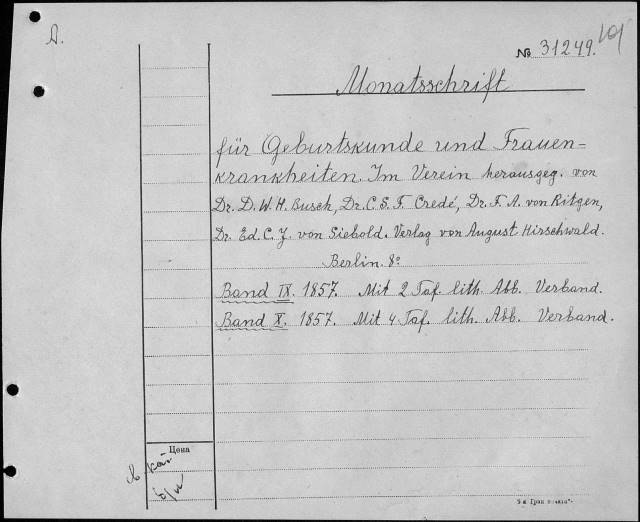 A.
№ 31249.
Monatsschrift
für Geburtskunde und Frauen=
krankheiten. Im Verein herausgeg. von
Dr. D. W. H. Busch, Dr. C. S. F. Credé, Dr. F. A. von Ritgen,
Dr. Ed. C. J. von Siebold. Verlag von August Hirschwald.
Berlin. 8º
Band IX. 1857. Mit 2 Taf. lith. Abb. Verband.
Band X. 1857. Mit 4 Taf. lith. Abb. Verband.
Цена